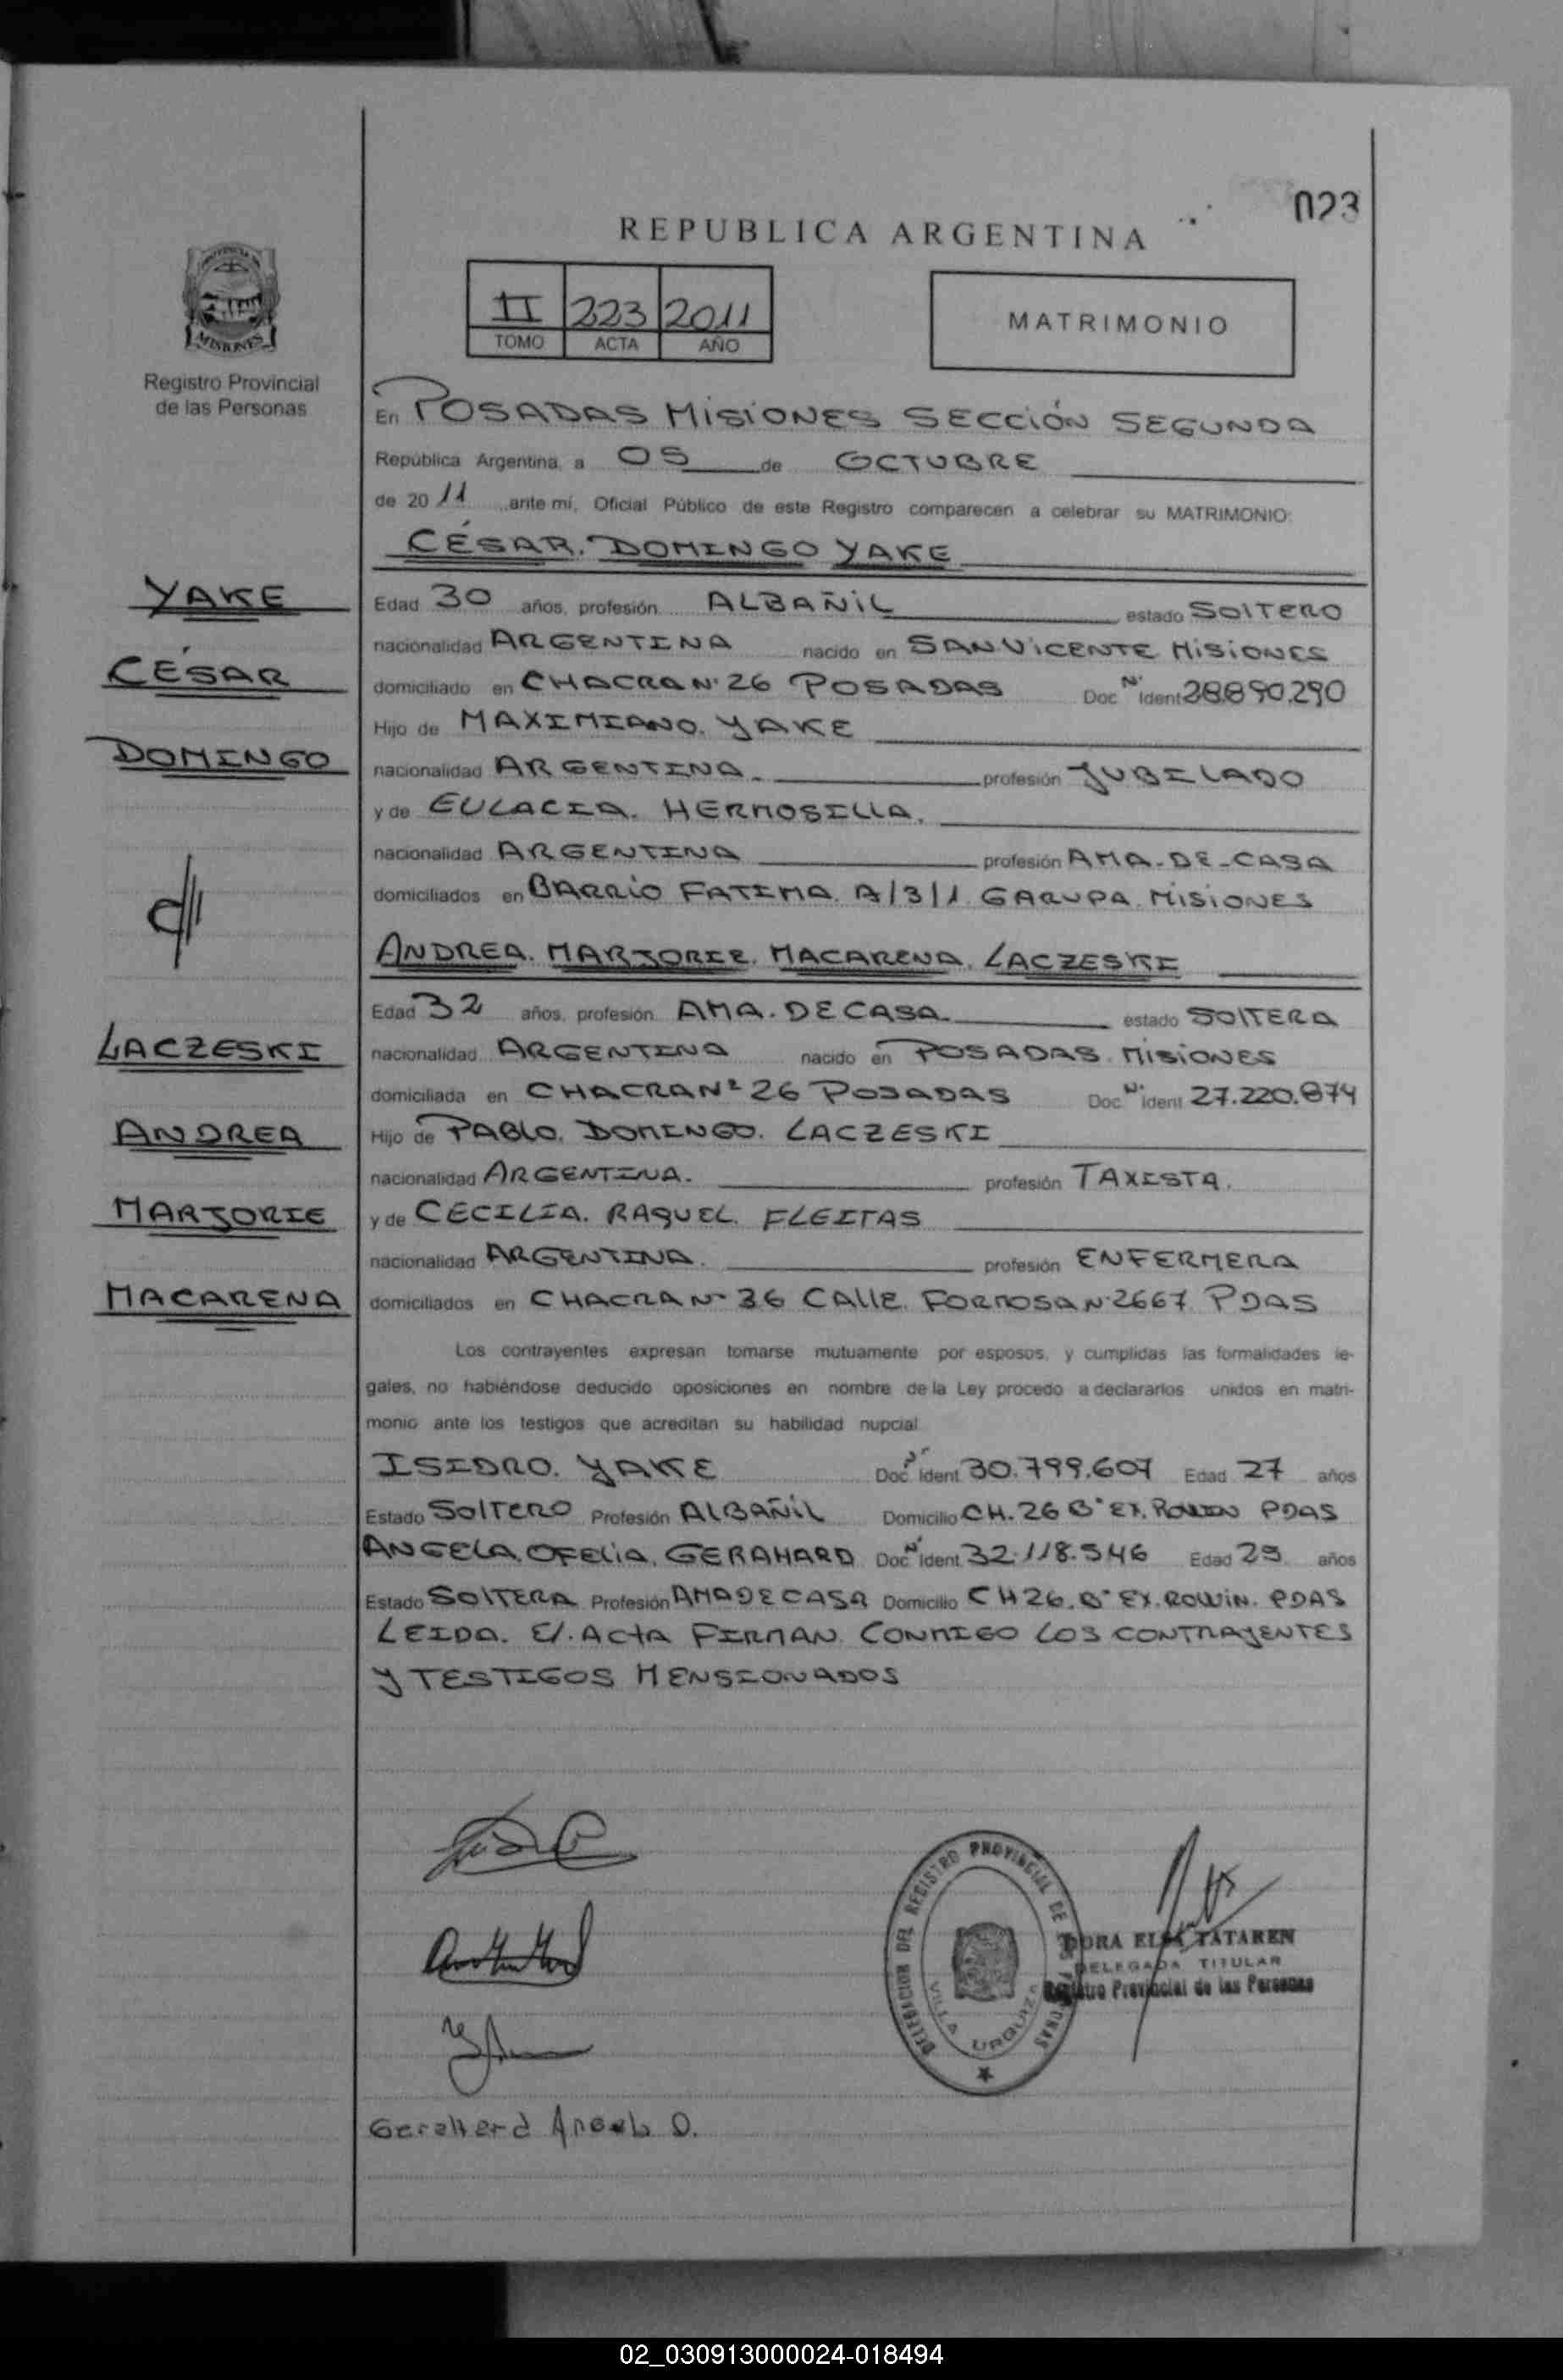 023
REPUBLICA ARGENTINA
II 223 2011
TOMO ACTA AÑO
MATRIMONIO
MISIONES
Registro Provincial
de las Personas
En POSADAS MISIONES SECCIÓN SEGUNDA
República Argentina, a 05 de OCTUBRE
de 2011 ante mí, Oficial Público de este Registro comparecen a celebrar su MATRIMONIO:
CÉSAR. DOMINGO YAKE
YAKE
CÉSAR
DOMINGO
Edad 30 años, profesión ALBAÑIL estado SOLTERO
nacionalidad ARGENTINA nacido en SAN VICENTE MISIONES
domiciliado en CHACRA N° 26 POSADAS Doc N° Ident 28.890.290
Hijo de MAXIMIANO. YAKE
nacionalidad ARGENTINA. profesión JUBILADO
y de EULACIA. HERMOSILLA.
nacionalidad ARGENTINA profesión AMA-DE-CASA
domiciliados en BARRIO FATIMA. A/3/1 GARUPA MISIONES
C/
ANDREA. MARJORIE. MACARENA. LACZESKI
LACZESKI
ANDREA
MARJORIE
MACARENA
Edad 32 años, profesión AMA. DE CASA. estado SOLTERA
nacionalidad ARGENTINA nacido en POSADAS MISIONES
domiciliada en CHACRA N° 26 POSADAS Doc N° Ident 27.220.874
Hijo de PABLO. DOMINGO. LACZESKI
nacionalidad ARGENTINA. profesión TAXISTA.
y de CECILIA. RAQUEL. FLEITAS
nacionalidad ARGENTINA. profesión ENFERMERA
domiciliados en CHACRA N° 36 CALLE FORMOSA N° 2667 PDAS
Los contrayentes expresan tomarse mutuamente por esposos, y cumplidas las formalidades le-
gales, no habiéndose deducido oposiciones en nombre de la Ley procedo a declararlos unidos en matri-
monio ante los testigos que acreditan su habilidad nupcial
ISIDRO. YAKE Doc N° Ident 30.799.607 Edad 27 años
Estado SOLTERO Profesión ALBAÑIL Domicilio CH. 26 B° EX. PDAS
ANGELA. OFELIA. GERAHARD Doc N° Ident 32.118.546 Edad 25 años
Estado SOLTERA Profesión AMA DE CASA Domicilio CH 26. B° EX. ROWIN. PDAS
LEIDA. El. ACTA FIRMAN. CONMIGO LOS CONTRAYENTES
Y TESTIGOS MENSIONADOS
DELEGACION DEL REGISTRO PROVINCIAL DE
VILLA URQUIZA
DORA ELSA TATAREN
DELEGADA TITULAR
Registro Provincial de las Personas
02_030913000024-018494